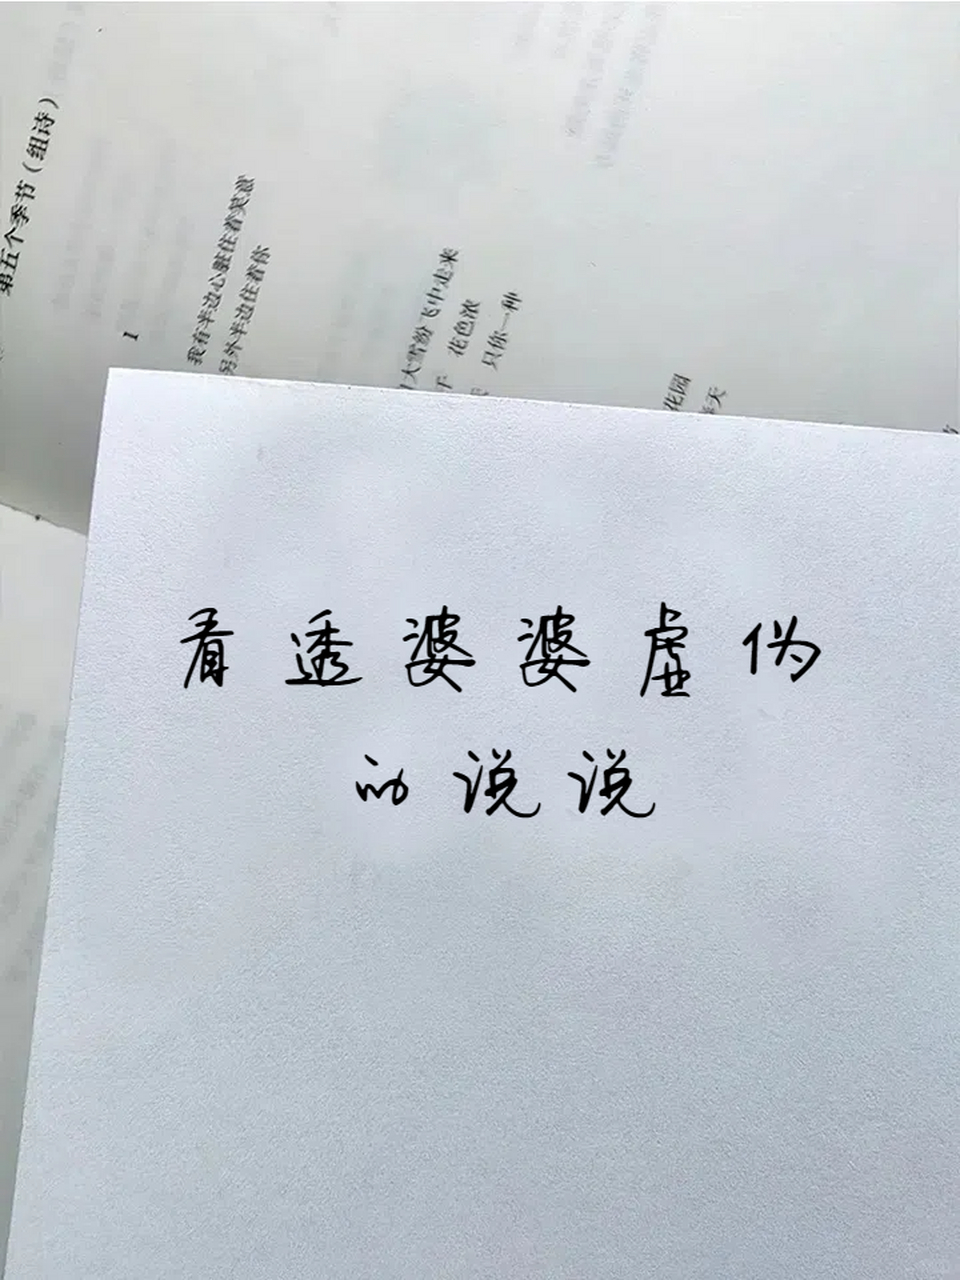 第五个季节（组诗）
1
我有半边心脏住着笑意
另外半边住着你
大雪纷飞中走来
花色浓
只你一种
花园
看透婆婆虚伪
的说说